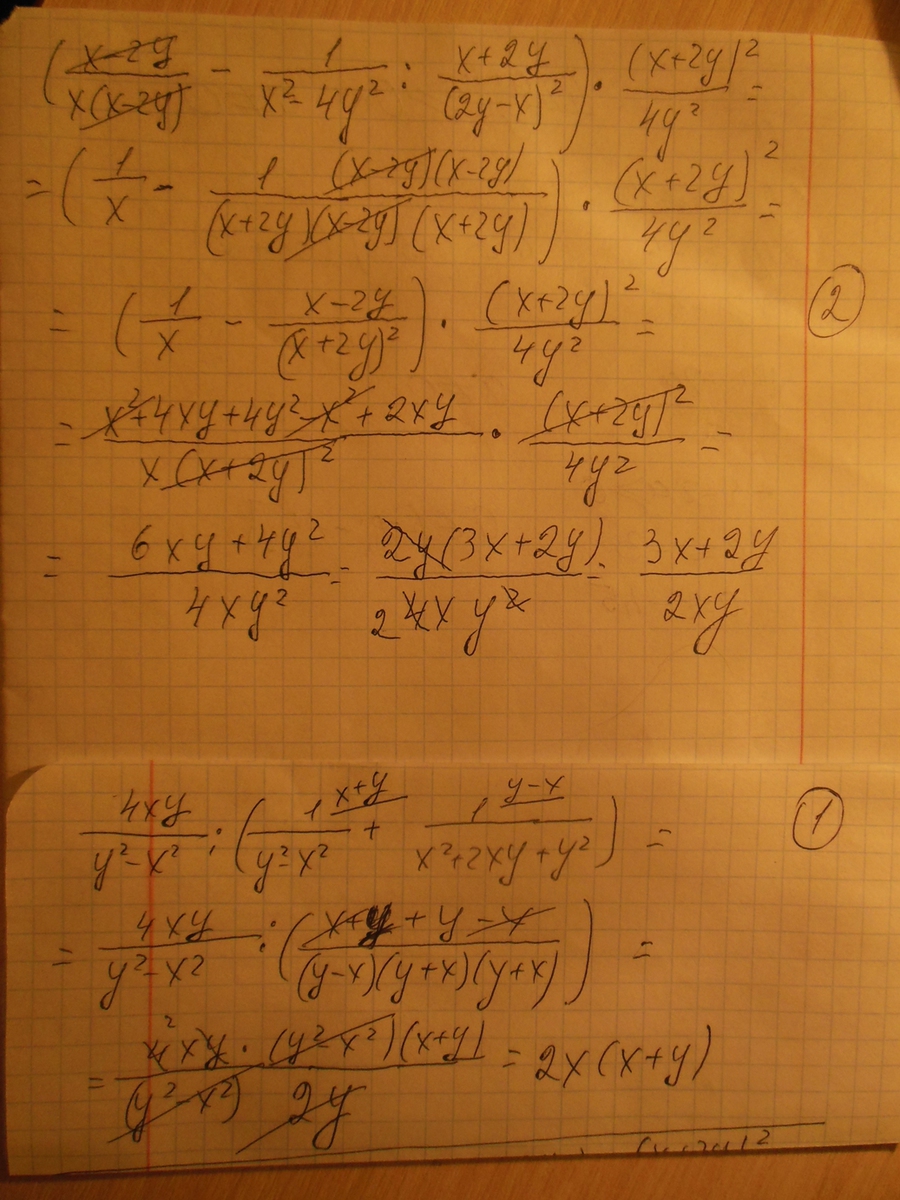 ( (x-2y)/(x(x-2y)) - 1/(x²-4y²) : (x+2y)/(2y-x)² ) · (x+2y)²/4y² =
= ( 1/x - (1 (x-2y)(x-2y))/((x+2y)(x-2y)(x+2y)) ) · (x+2y)²/4y² =
= ( 1/x - (x-2y)/(x+2y)² ) · (x+2y)²/4y² =
②
= (x²+4xy+4y²-x²+2xy)/(x(x+2y)²) · (x+2y)²/4y² =
= (6xy+4y²)/4xy² = (2y(3x+2y))/(2 4xy²) = (3x+2y)/2xy
4xy/(y²-x²) : ( 1 x+y/(y²-x²) + 1 y-x/(x²+2xy+y²) ) =
①
= 4xy/(y²-x²) : ( (x+y+y-x)/((y-x)(y+x)(y+x)) ) =
= (4 2 xy · (y²-x²)(x+y))/((y²-x²) 2y) = 2x(x+y)